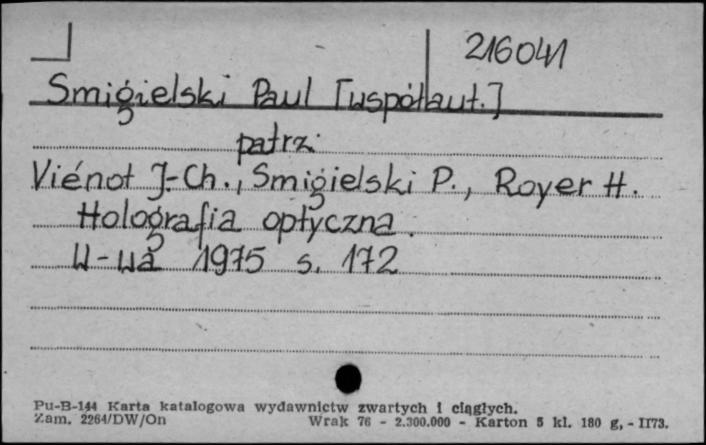 216041
Smigielski Paul [współaut.]
patrz:
Viénot J.-Ch., Smigielski P., Royer H.
Holografia optyczna.
W-wa 1975 s. 172
Pu-B-144 Karta katalogowa wydawnictw zwartych i ciągłych.
Zam. 2264/DW/On Wrak 76 - 2.300.000 - Karton 5 kl. 180 g, - II73.